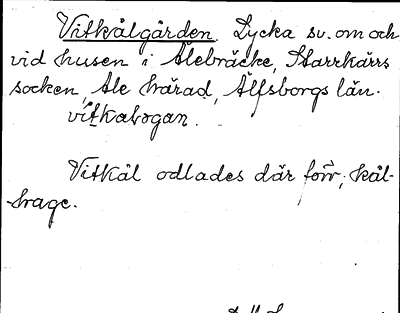 Vitkålgården. Lycka sv. om och
vid husen i Alebräcke, Starrkärrs
socken, Ale härad, Älfsborgs län.
vitkabogan.
Vitkål odlades där förr; kål-
hage.